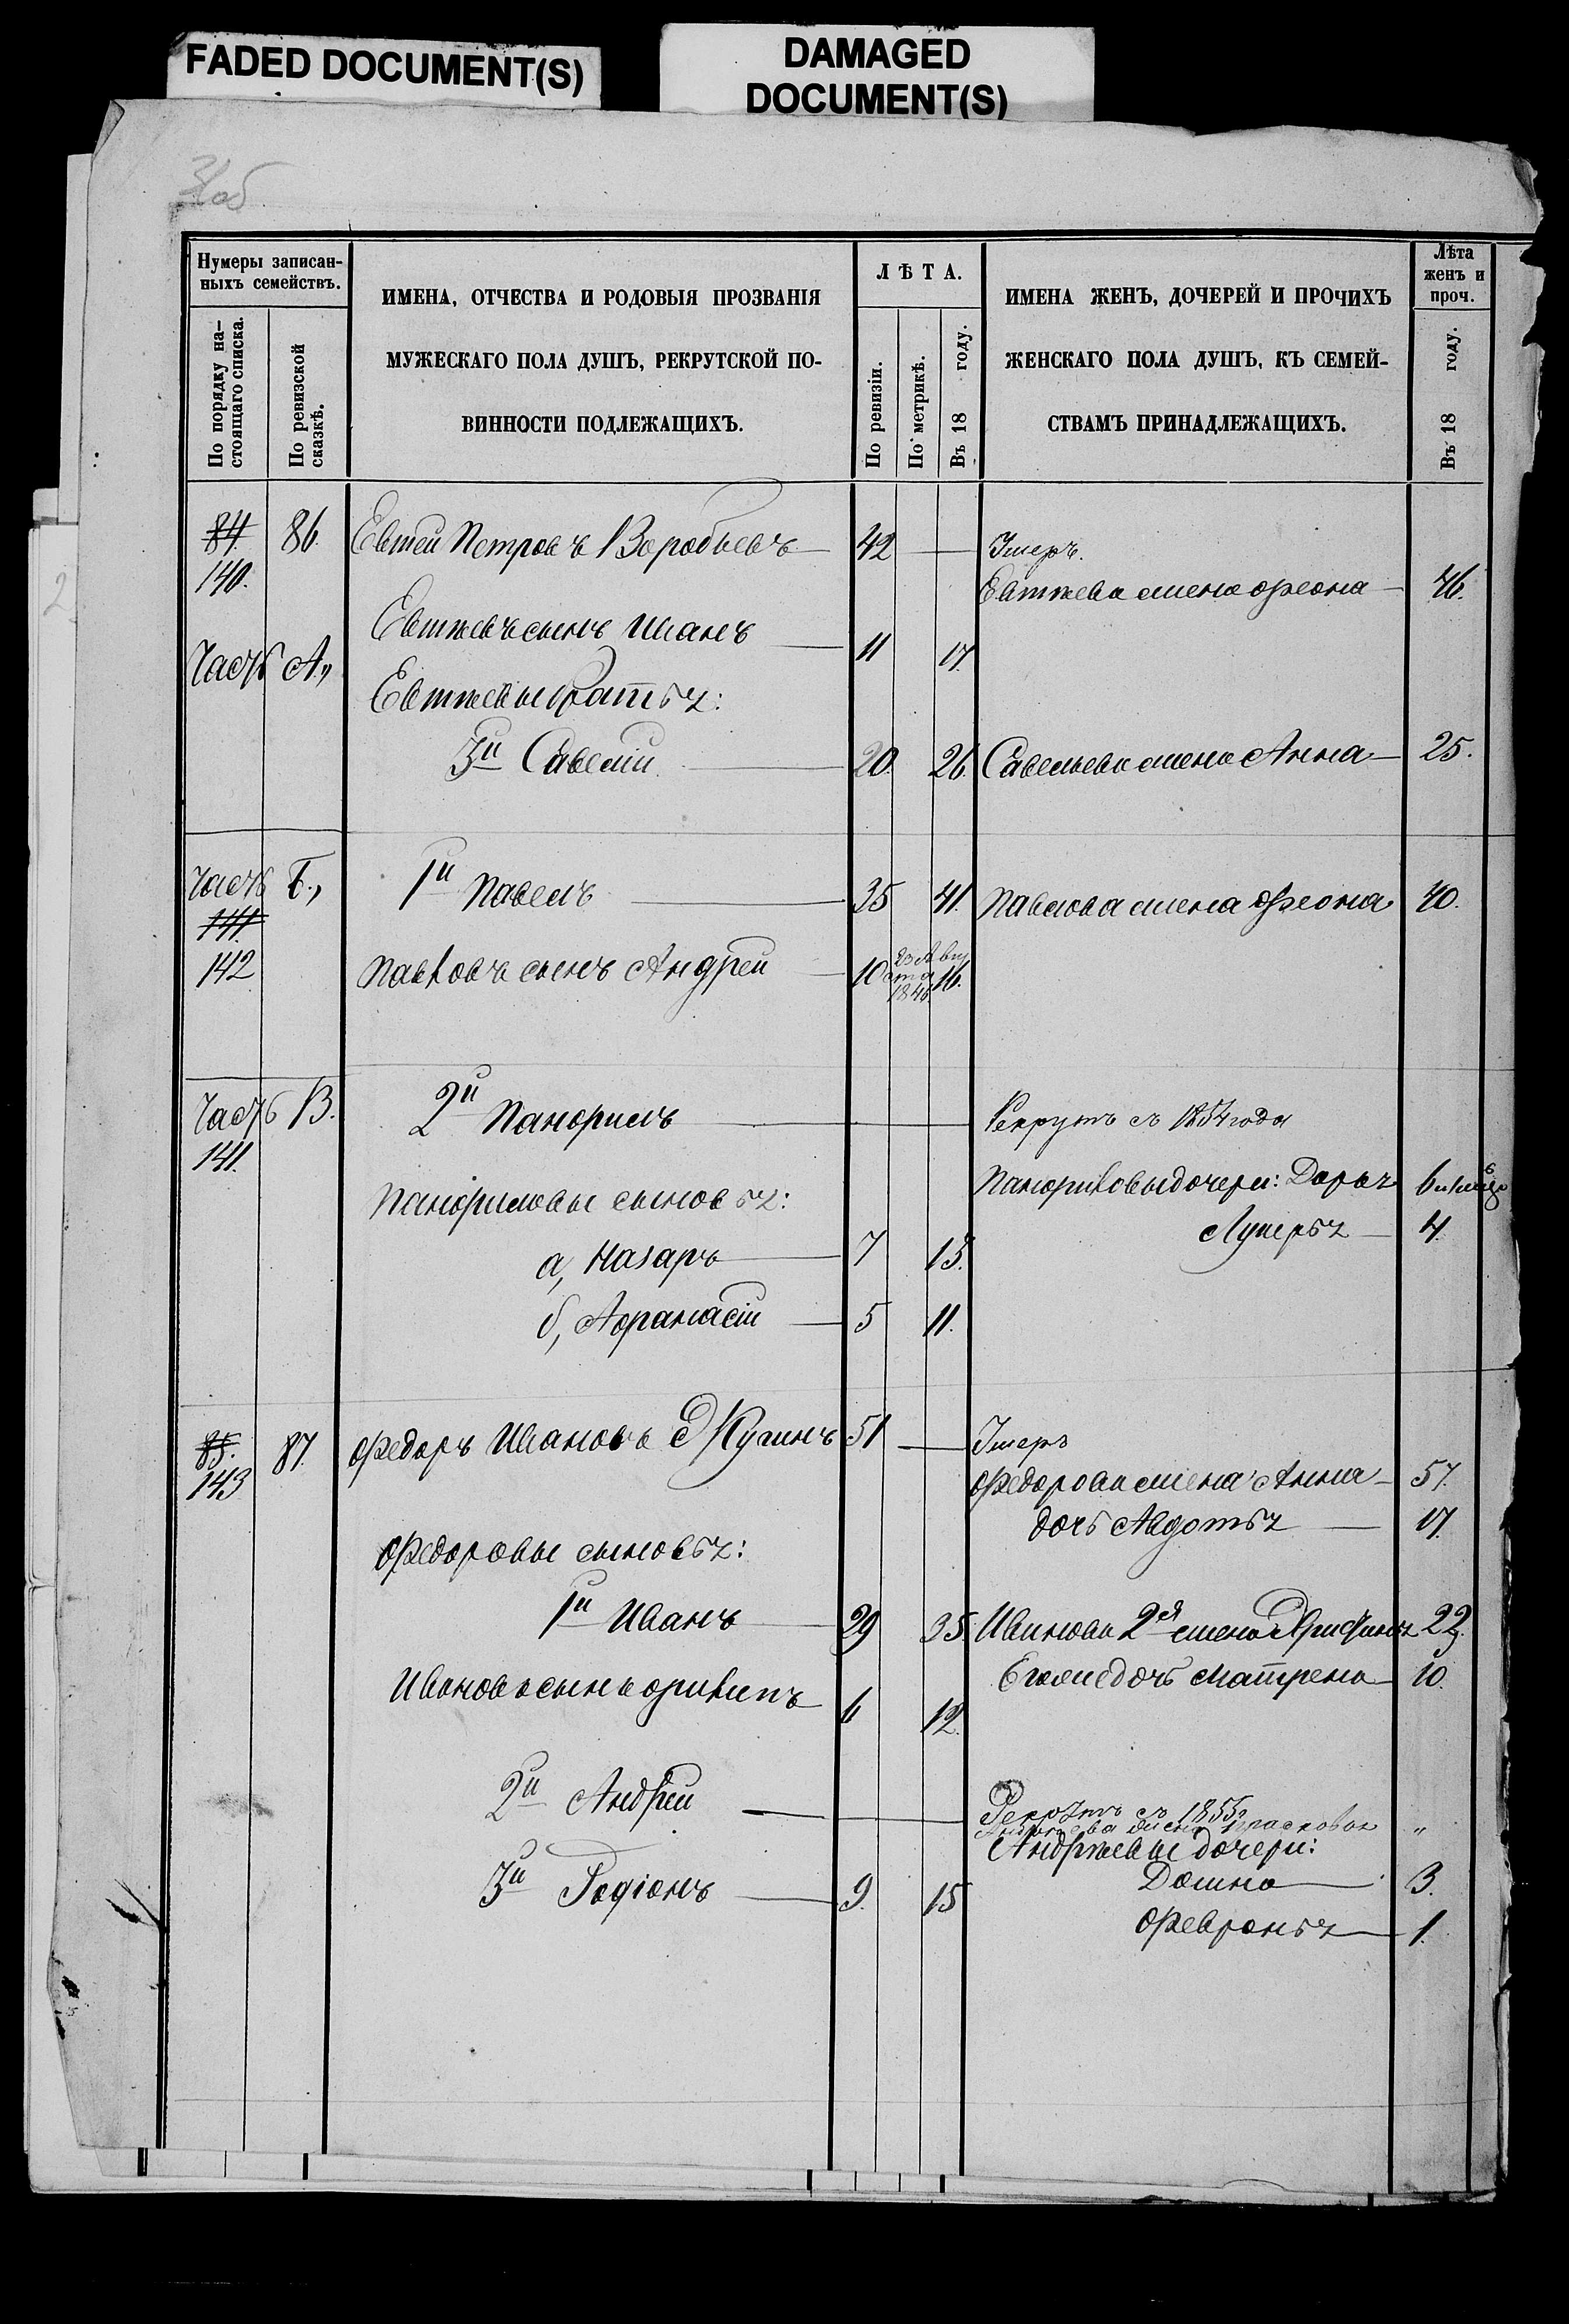 FADED DOCUMENT(S)
DAMAGED
DOCUMENT(S)
Нумеры записан-
ныхъ семействъ.
По порядку на-
стоящаго списка.
По ревизской
сказкѣ.
ИМЕНА, ОТЧЕСТВА И РОДОВЫЯ ПРОЗВАНІЯ
МУЖЕСКАГО ПОЛА ДУШЪ, РЕКРУТСКОЙ ПО-
ВИННОСТИ ПОДЛЕЖАЩИХЪ.
ЛѢТА.
По ревизіи.
По метрикѣ.
Въ 18 году.
ИМЕНА ЖЕНЪ, ДОЧЕРЕЙ И ПРОЧИХЪ
ЖЕНСКАГО ПОЛА ДУШЪ, КЪ СЕМЕЙ-
СТВАМЪ ПРИНАДЛЕЖАЩИХЪ.
Лѣта
женъ и
проч.
Въ 18 году.
84. 86. Евтей Петровъ Воробьевъ 42 Умеръ.
140. Евтѣева жена Феона 46.
Евтѣевъ сынъ Иванъ 11 17.
Часть А.,
Евтѣевы братья:
3й Савелій 20. 26. Савельева жена Анна 25.
Часть Б., 1й Павелъ 35 41. Павлова жена Феона 40.
141.
142 Павловъ сынъ Андрей 10 23 Авгу
ста 16.
1846.
Часть В. 2й Панфилъ Рекрутъ съ 1854 года
141.
Панфиловы дочери: Дарья 6
Панфиловы сыновья:
Лукерья 4.
а, Назаръ 7 13.
б, Афанасій 5 11.
85. 87. Федоръ Ивановъ 51 Умеръ
143 Федорова жена Анна 57.
дочь Авдотья 17.
Федоровы сыновья:
1й Иванъ 29 35. Иванова 2я жена 22.
Его же дочь Матрена 10.
Ивановъ сынъ Филипъ 6 12.
2й Андрей Рекрутъ съ 1855г
Андреева жена Прасковья „
Андрѣевы дочери:
3й Родіонъ 9. 15 Домна 3.
Февронья 1.